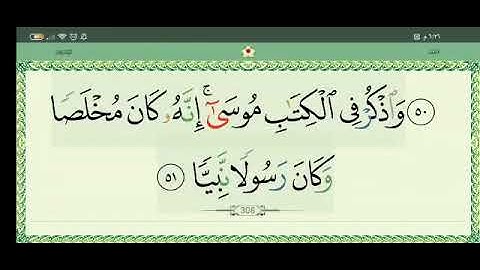 ٦:٣١ م
٥٠ وَٱذۡكُرۡ فِي ٱلۡكِتَٰبِ مُوسَىٰٓۚ إِنَّهُۥ كَانَ مُخۡلَصٗا
وَكَانَ رَسُولٗا نَّبِيّٗا ٥١
306